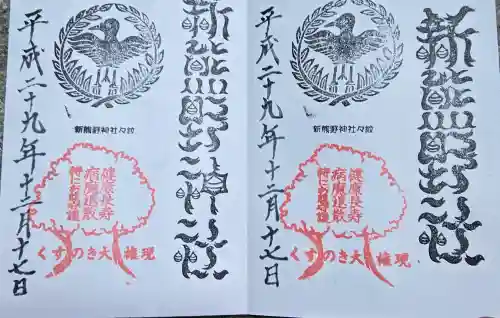 新熊野神社
新熊野神社々紋
健康長寿
病魔退散
特にお腹守護
くすのき大権現
平成二十九年十二月十七日
新熊野神社
新熊野神社々紋
健康長寿
病魔退散
特にお腹守護
くすのき大権現
平成二十九年十二月十七日